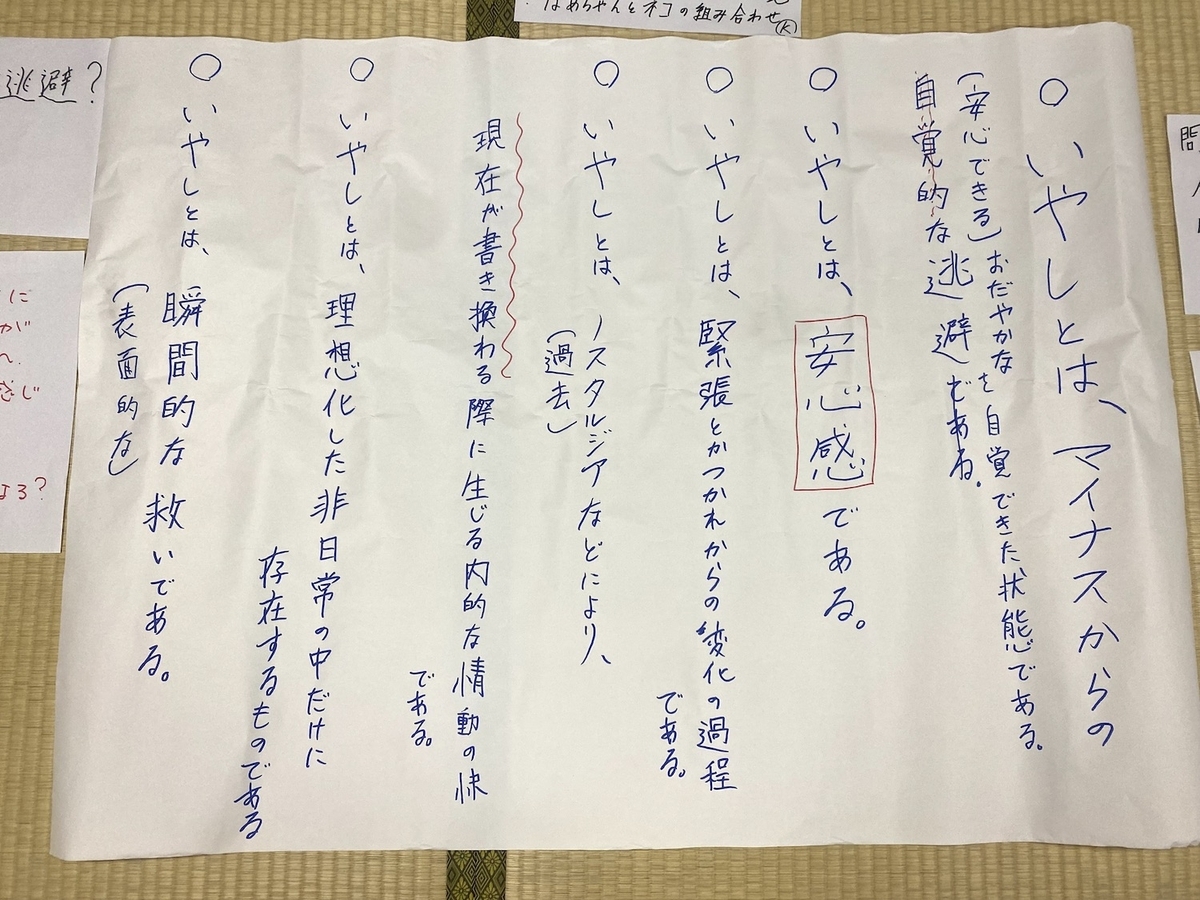 ○いやしとは、マイナスからの
(安心できる)おだやかなを自覚できた状態である。
自覚的な逃避である。
○いやしとは、安心感である。
○いやしとは、緊張とかつかれからの変化の過程
である。
○いやしとは、ノスタルジアなどにより、
(過去)
現在が書き換わる際に生じる内的な情動の快
である。
○いやしとは、理想化した非日常の中だけに
存在するものである
○いやしとは、瞬間的な救いである。
(表面的な)
逃避?
とネコの組み合わせ
K